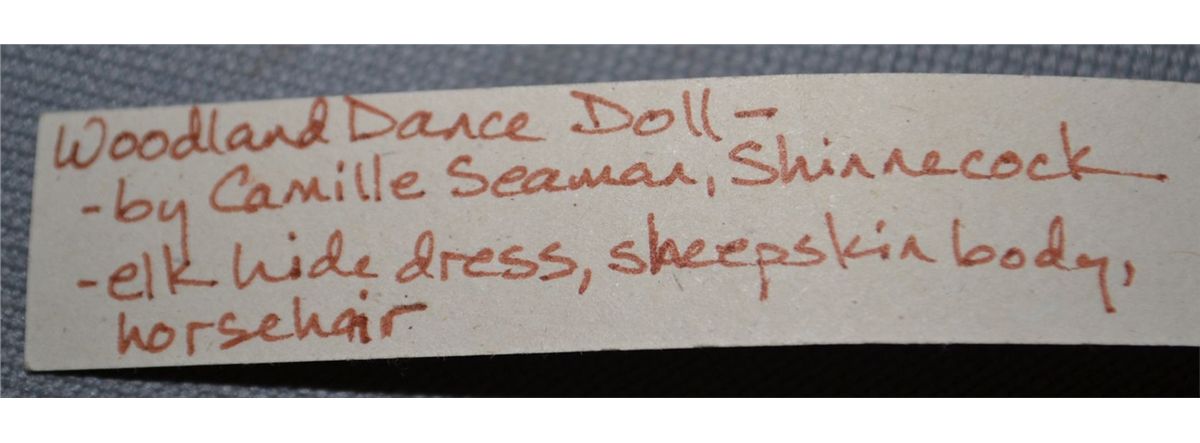 Woodland Dance Doll -
- by Camille Seaman, Shinnecock
- elk hide dress, sheepskin body,
horsehair